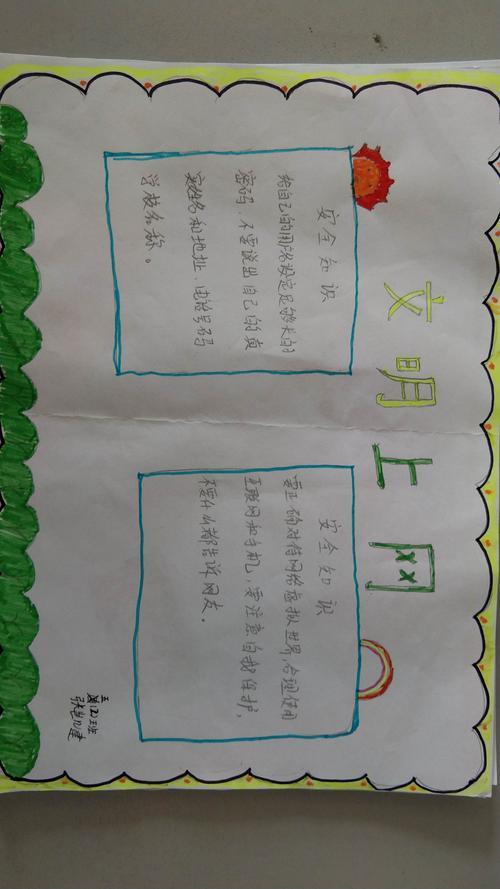 文明上网
安全知识
给自己的用户名设定足够长的
密码、不要说出自己的真
实姓名和地址、电话号码
学校名称。
安全知识
要正确对待网络虚拟世界,合理使用
互联网和手机,要注意自我保护,
不要什么都告诉网友。